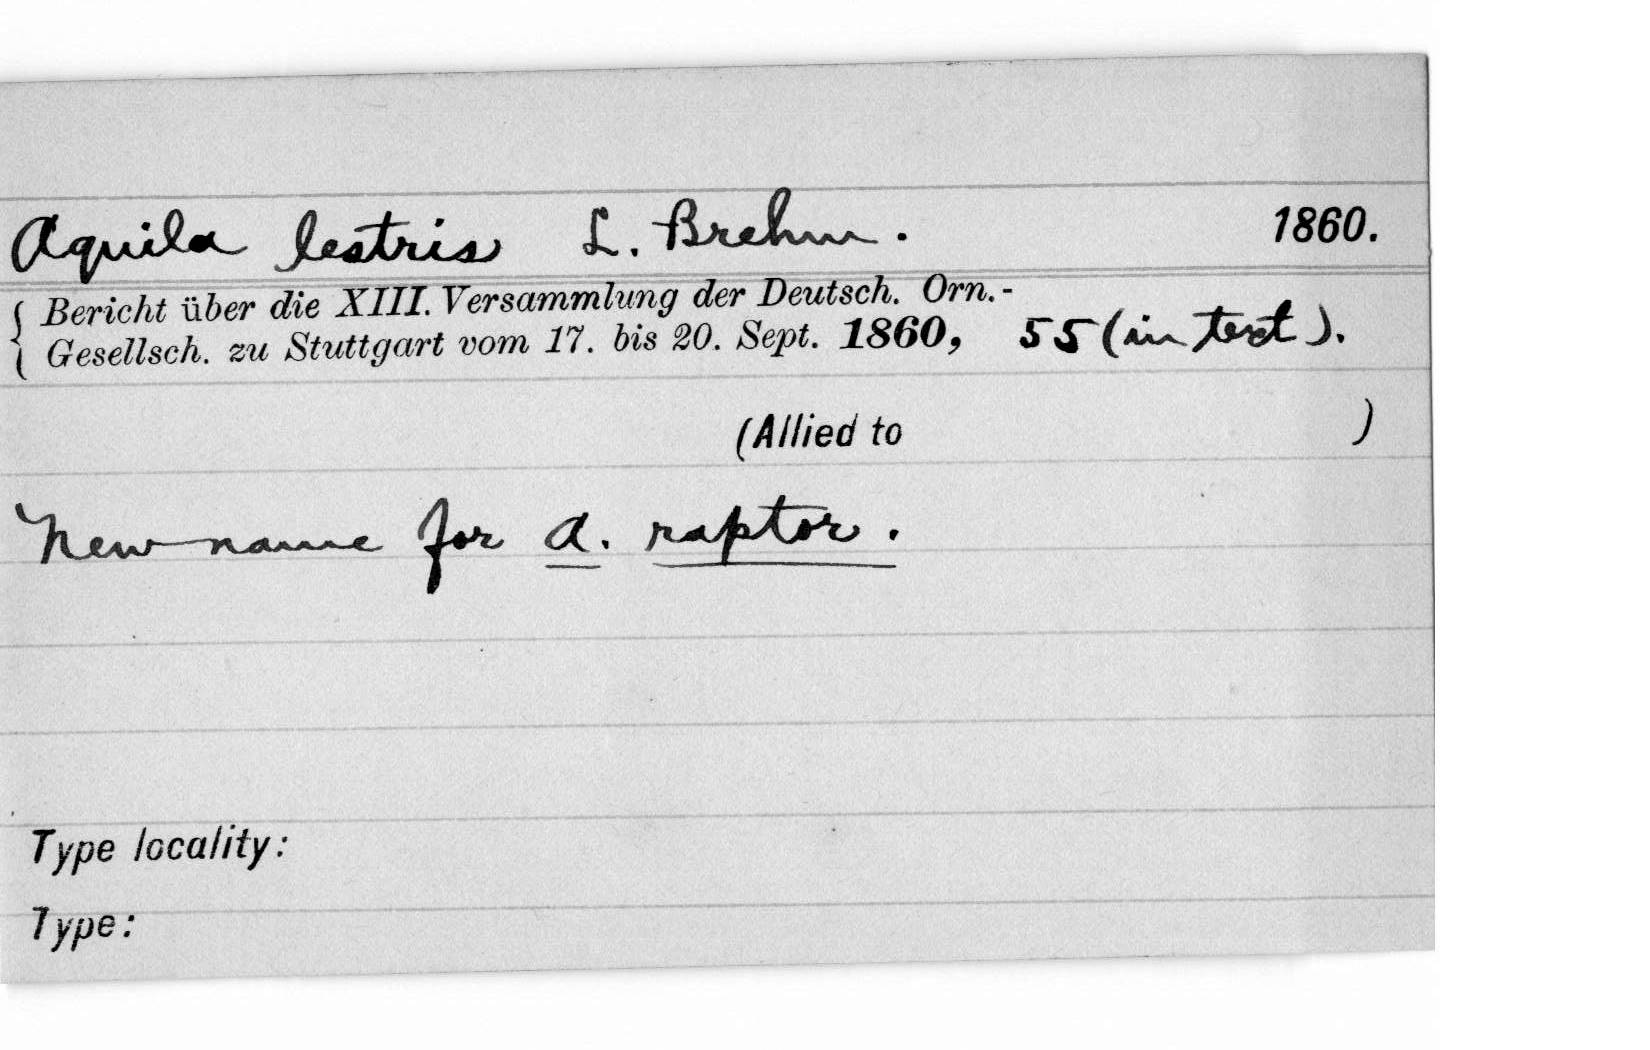 Aquila lestris L. Brehm. 1860.
{ Bericht über die XIII. Versammlung der Deutsch. Orn.-
Gesellsch. zu Stuttgart vom 17. bis 20. Sept. 1860, 55 (in text).
(Allied to )
New name for A. raptor.
Type locality:
Type: